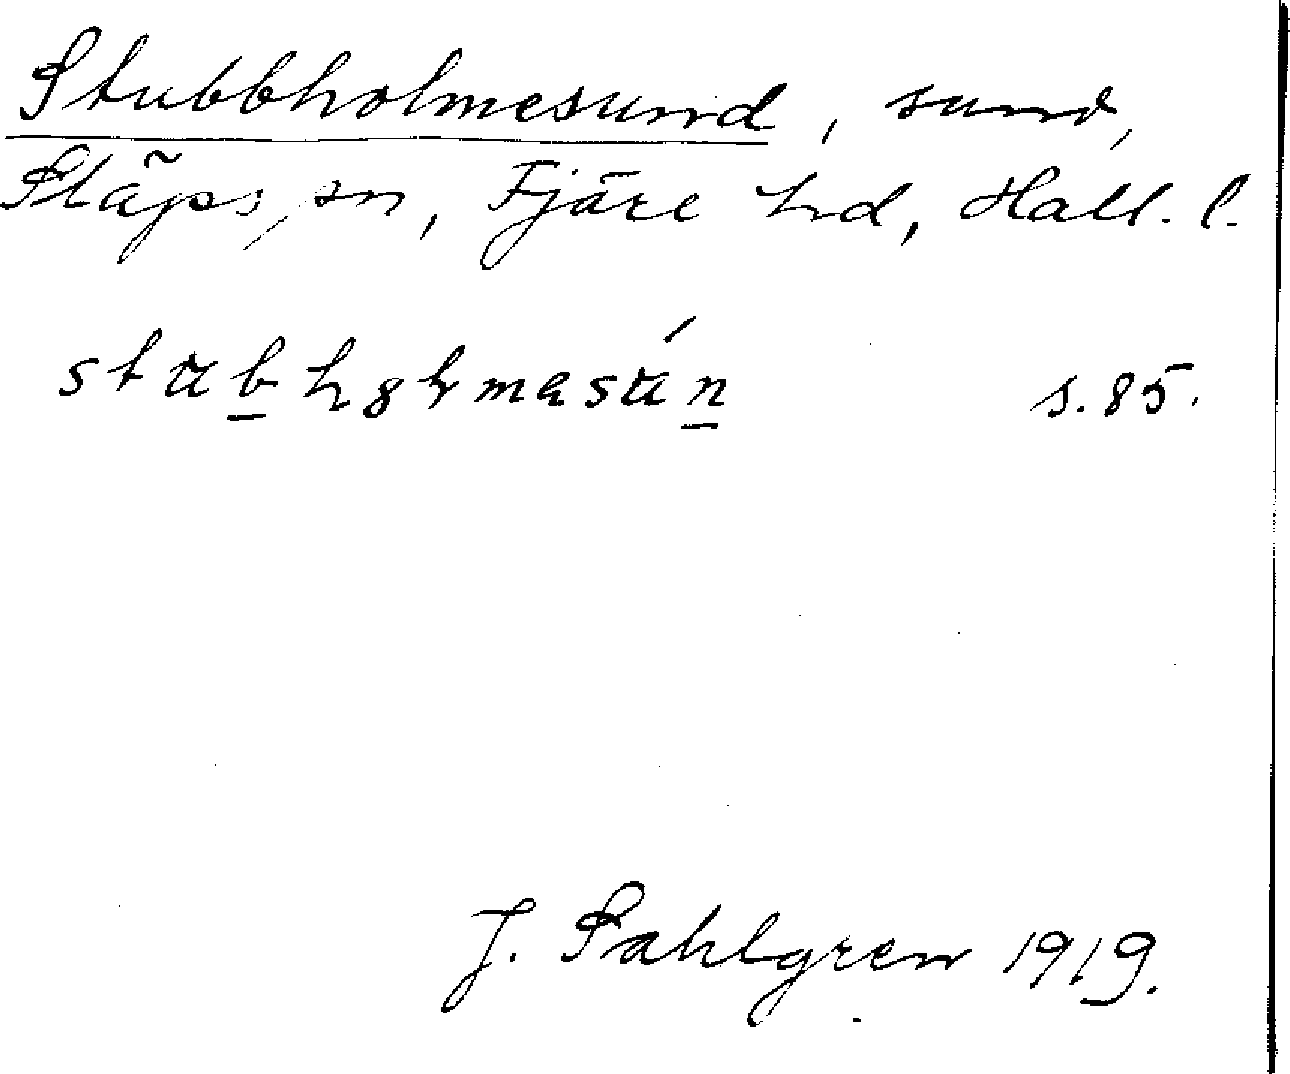 Stubbholmesund, sund,
Släps, sn, Fjäre hd, Hall. l.
s. 85.
J. Sahlgren 1919.